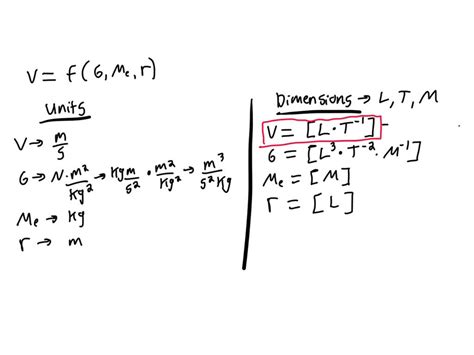 V = f(G, Me, r)
Units
V → m/s
G → N·m²/kg² → kg m/s² · m²/kg² → m³/s² kg
Me → kg
r → m
Dimensions → L, T, M
V = [L · T⁻¹] -
G = [L³ · T⁻² · M⁻¹]
Me = [M]
r = [L]